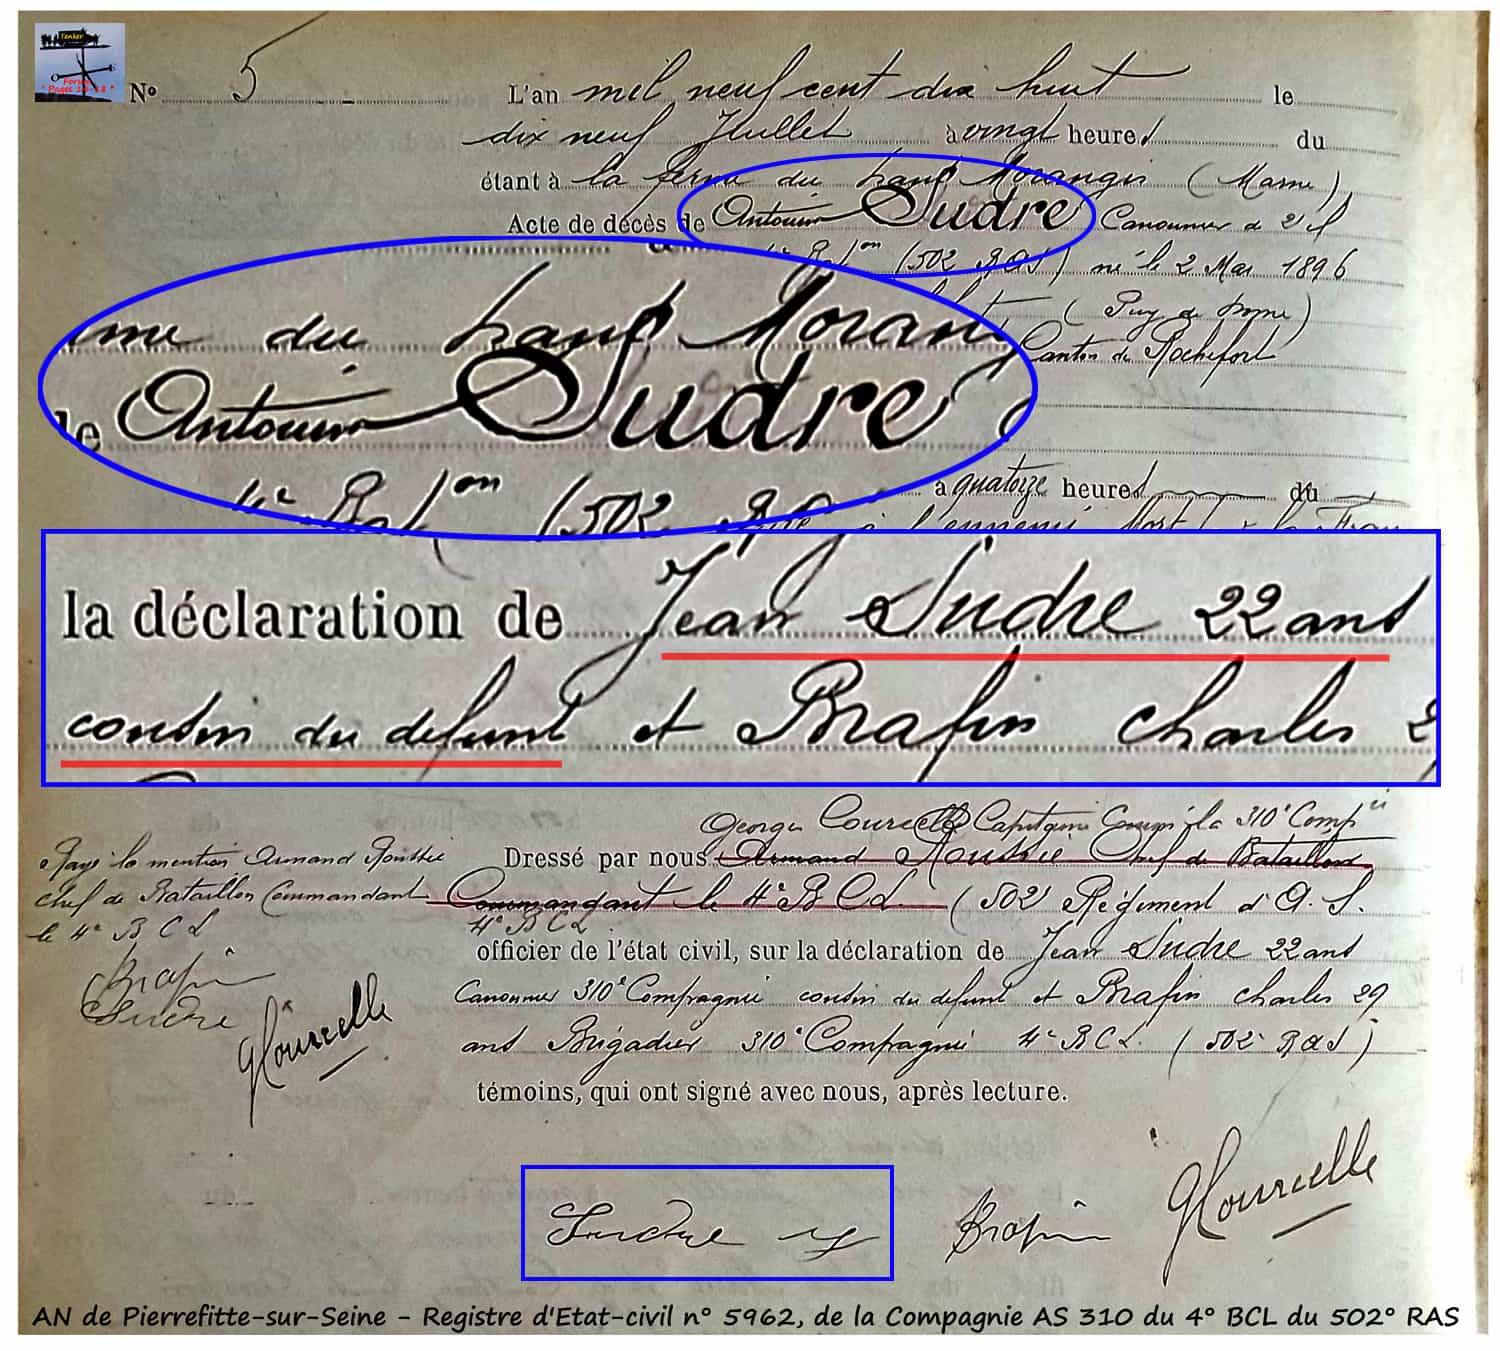 Tanker
Forum
" Pages 14-18 "
N° 5
L'an mil neuf cent dix huit le
dix neuf Juillet à vingt heures du
étant à la ferme du haut Morangis (Marne)
Acte de décès de Antoine Sudre Canonnier de 2e cl
4e Bat on (502 RAS) né le 2 Mai 1896
(Puy de Dome)
Canton de Rochefort
me du haut Moran
de Antoine Sudre
4e Bat on (502
à quatorze heures du
à l'ennemi Mort
la déclaration de Jean Sudre 22 ans
cousin du defunt et Brafin charles 2
Georges Courcelle Capitaine la 310e Compie
Dressé par nous Armand Roussie Chef de Bataillon
Commandant le 4e B C L. (502 Régiment d'A. S.
4e B C L
officier de l'état civil, sur la déclaration de Jean Sudre 22 ans
Canonnier 310e Compagnie cousin du defunt et Brafin charles 29
ans Brigadier 310e Compagnie 4e B C L. (502e R A S)
témoins, qui ont signé avec nous, après lecture.
Rayé la mention Armand Roussie
chef de Bataillon Commandant
le 4e B C L
Brafin
Sudre
GCourcelle
Sudre J
Brafin
GCourcelle
AN de Pierrefitte-sur-Seine - Registre d'Etat-civil n° 5962, de la Compagnie AS 310 du 4° BCL du 502° RAS